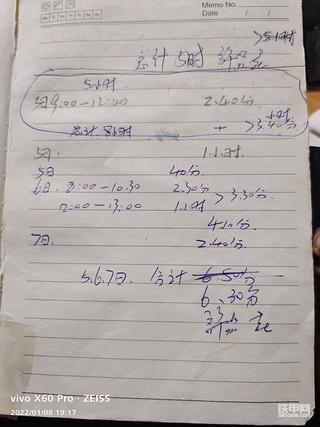 Memo No.
Date / /
>5小时
总计5时
5小时
5日9:00—12:40 2.40分
>3.40分
总计 8小时 +
5日. 1小时.
5日 40分
6日 8:00—10.30 2.30分 >3.30分.
12:00—13:00 1小时
4.10分
7日. 2.40分.
5.6.7日. 合计 6.50分
6.30分
vivo X60 Pro · ZEISS
2022/01/08 19:17
铁甲网